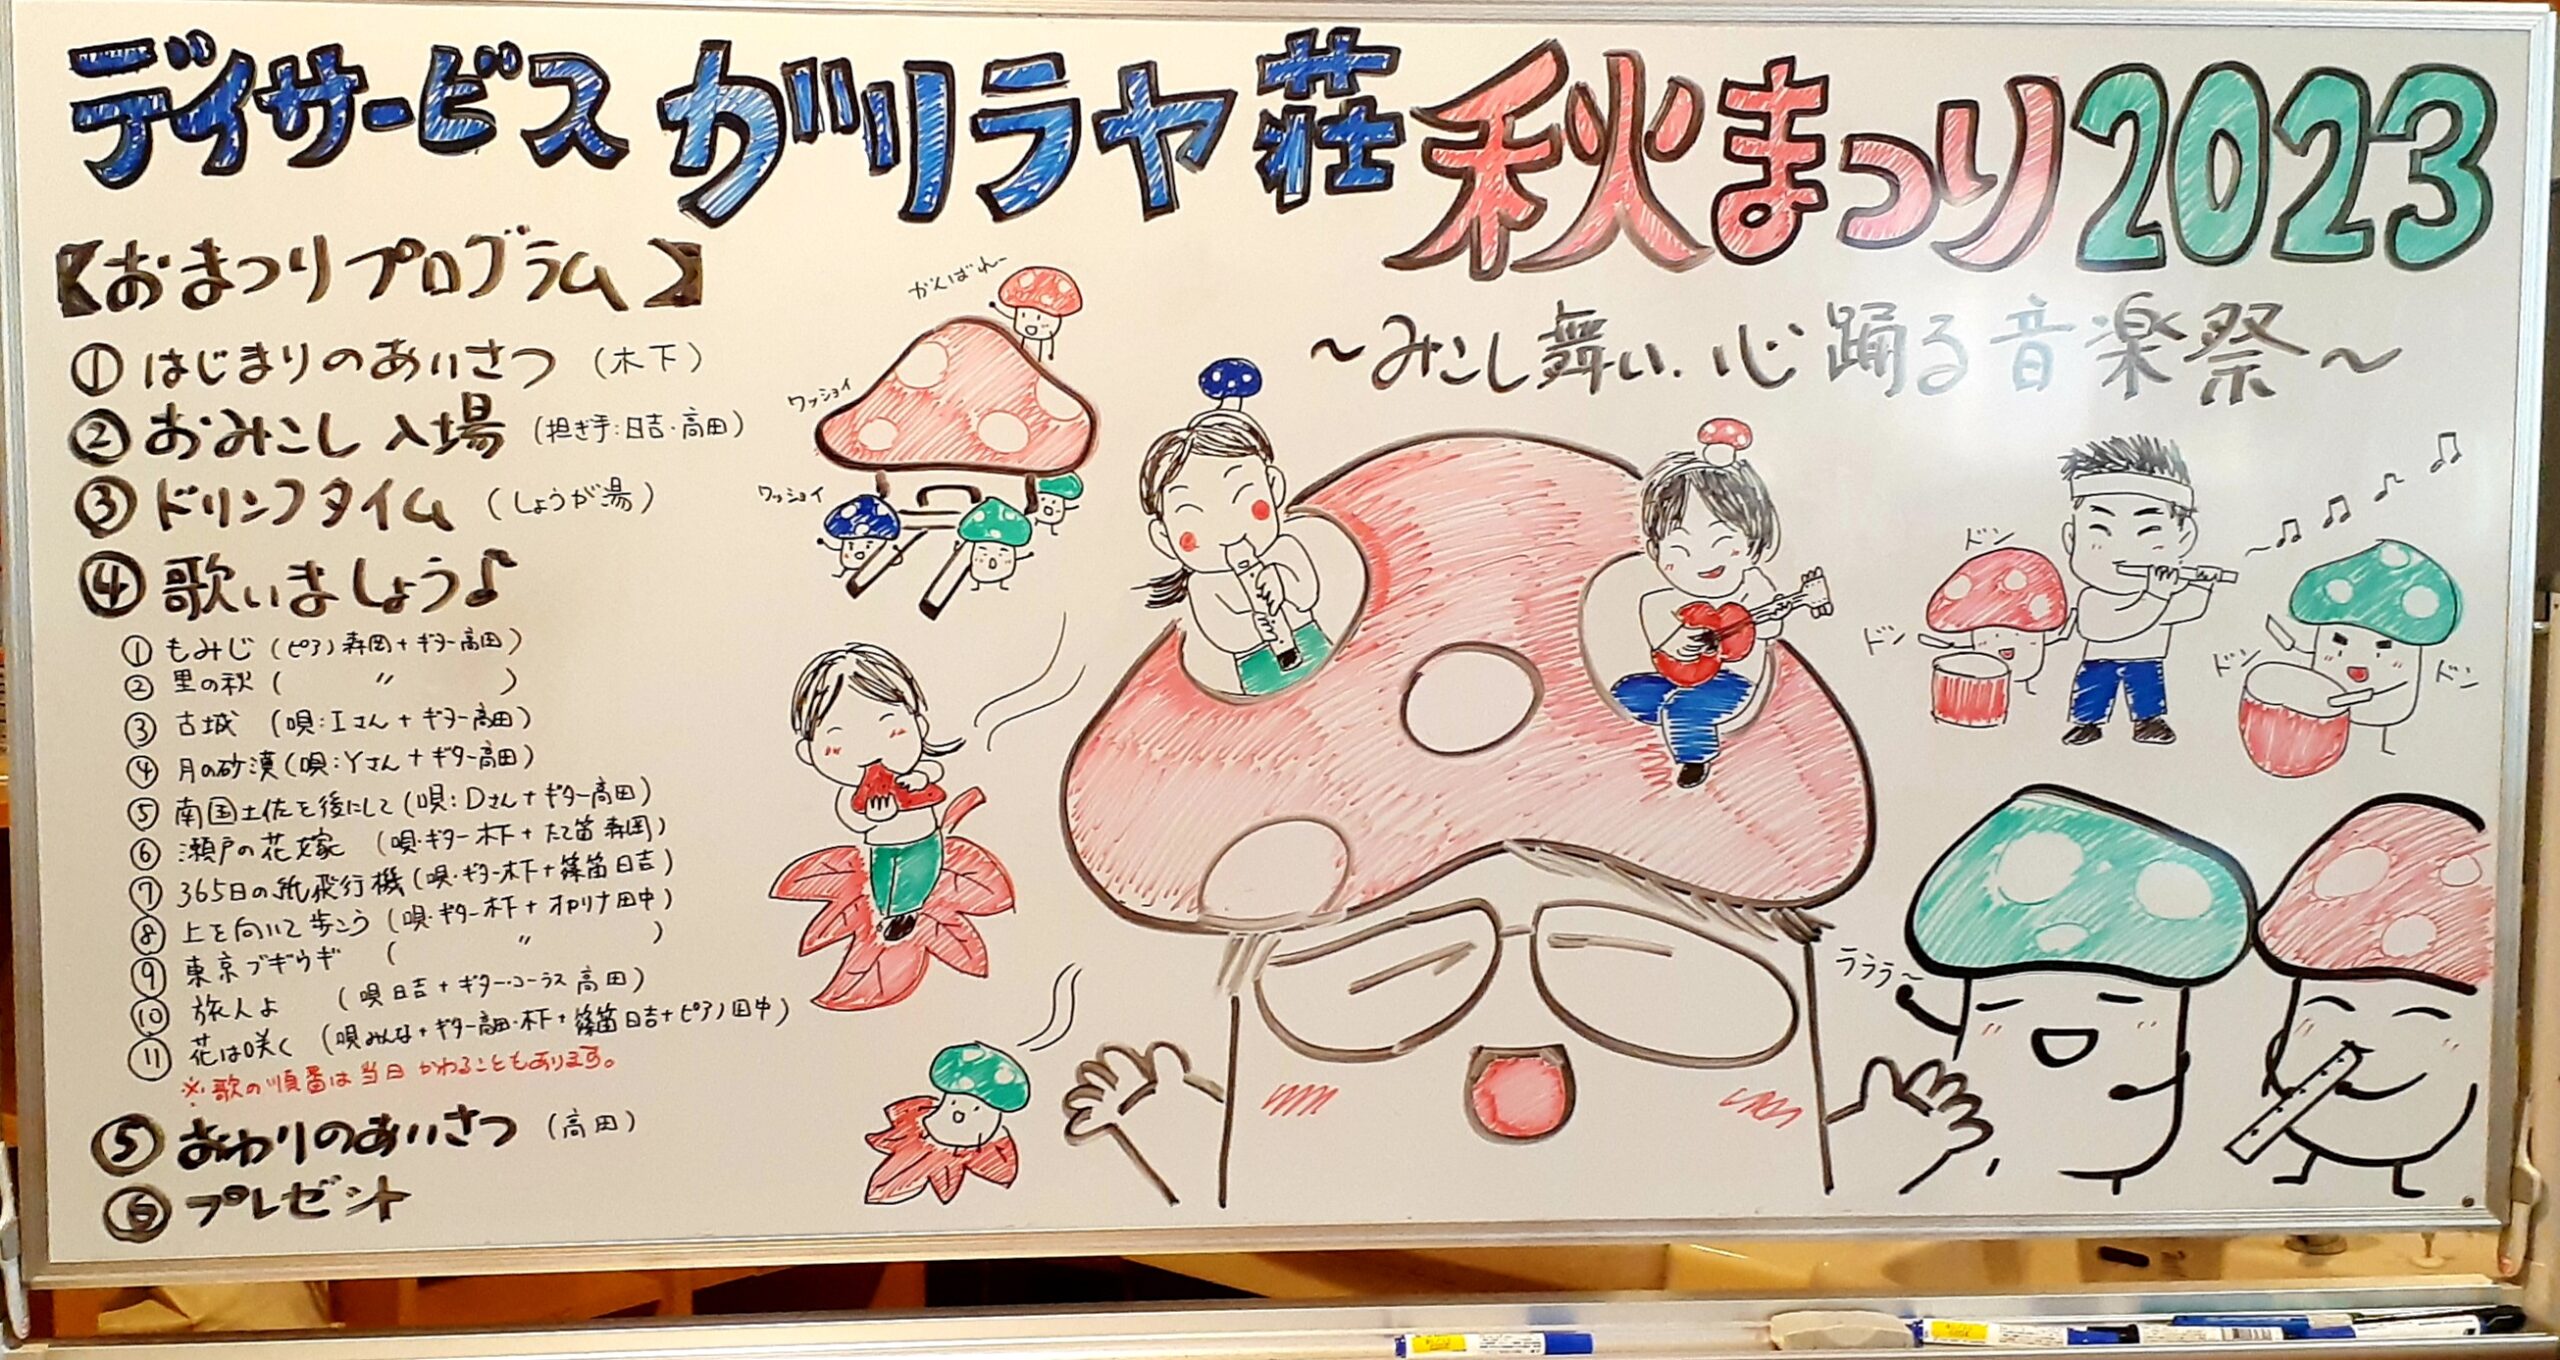 デイサービス ガリラヤ荘 秋まつり2023
～みこし舞い、心踊る音楽祭～
【おまつりプログラム】
① はじまりのあいさつ (木下)
② おみこし入場 (担ぎ手:日吉・高田)
③ ドリンクタイム (しょうが湯)
④ 歌いましょう♪
① もみじ (ピアノ森岡+ギター高田)
② 里の秋 ( 〃 )
③ 古城 (唄:Iさん+ギター高田)
④ 月の砂漠 (唄:Yさん+ギター高田)
⑤ 南国土佐を後にして (唄:Dさん+ギター高田)
⑥ 瀬戸の花嫁 (唄・ギター木下+たて笛森岡)
⑦ 365日の紙飛行機 (唄・ギター木下+篠笛日吉)
⑧ 上を向いて歩こう (唄・ギター木下+オカリナ田中)
⑨ 東京ブギウギ ( 〃 )
⑩ 旅人よ (唄日吉+ギター・コーラス高田)
⑪ 花は咲く (唄みんな+ギター高田・木下+篠笛日吉+ピアノ田中)
※歌の順番は当日かわることもあります。
⑤ おわりのあいさつ (高田)
⑥ プレゼント
がんばれー
ワッショイ
ワッショイ
ドン
ドン
ドン
ドン
ラララ～